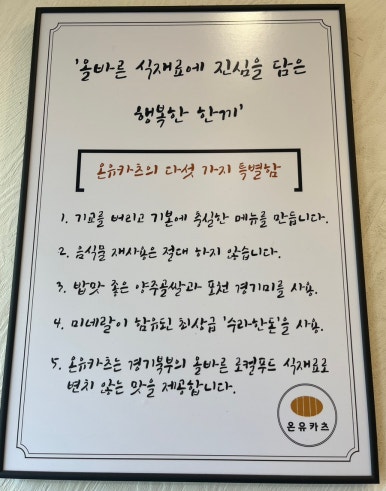 '올바른 식재료에 진심을 담은
행복한 한끼'
온유카츠의 다섯 가지 특별함
1. 기교를 버리고 기본에 충실한 메뉴를 만듭니다.
2. 음식물 재사용은 절대 하지 않습니다.
3. 밥맛 좋은 양주골쌀과 포천 경기미를 사용.
4. 미네랄이 함유된 최상급 '수라한돈'을 사용.
5. 온유카츠는 경기북부의 올바른 로컬푸드 식재료로
변치 않는 맛을 제공합니다.
온유카츠